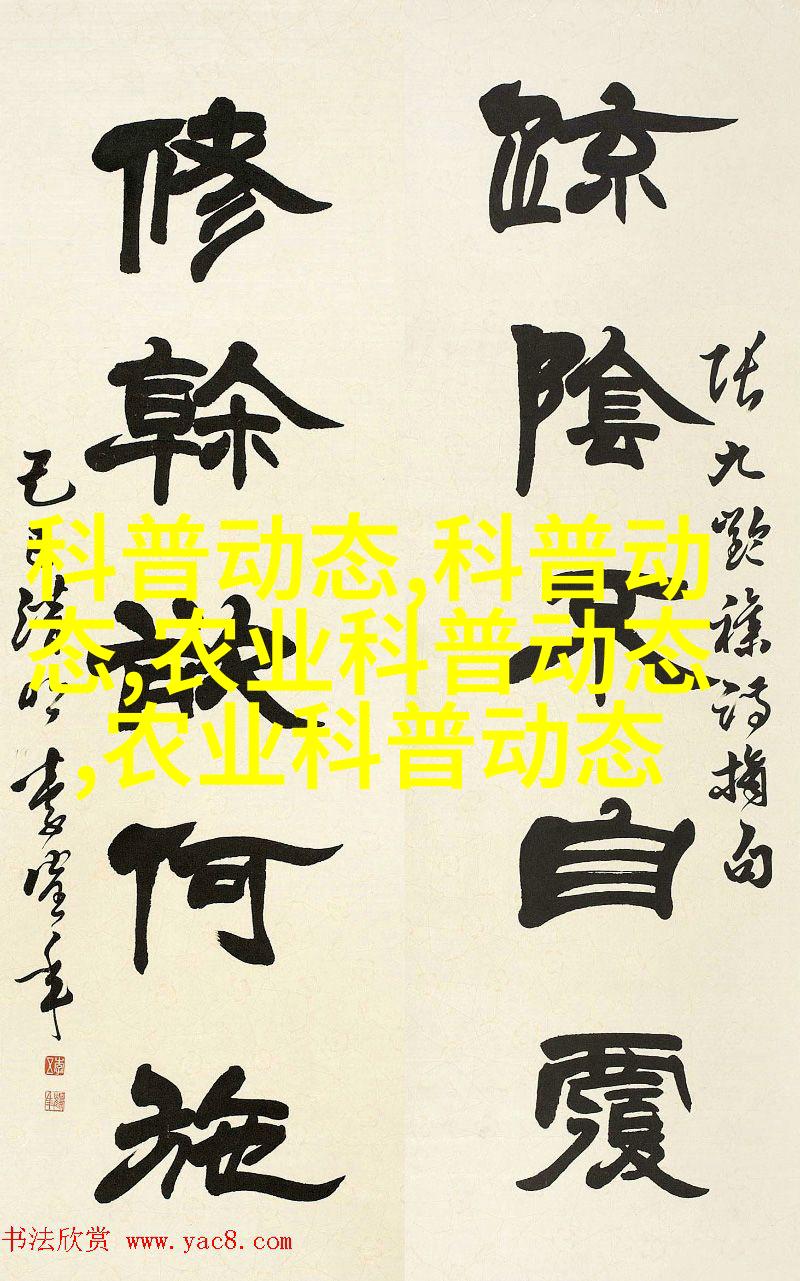 疏陰不自覆
修幹詎何施
張九齡雜詩摘句
李鐸年
科普动态,科普动
态,农业科普动态
,农业科普动态
书法欣赏 www.yac8.com